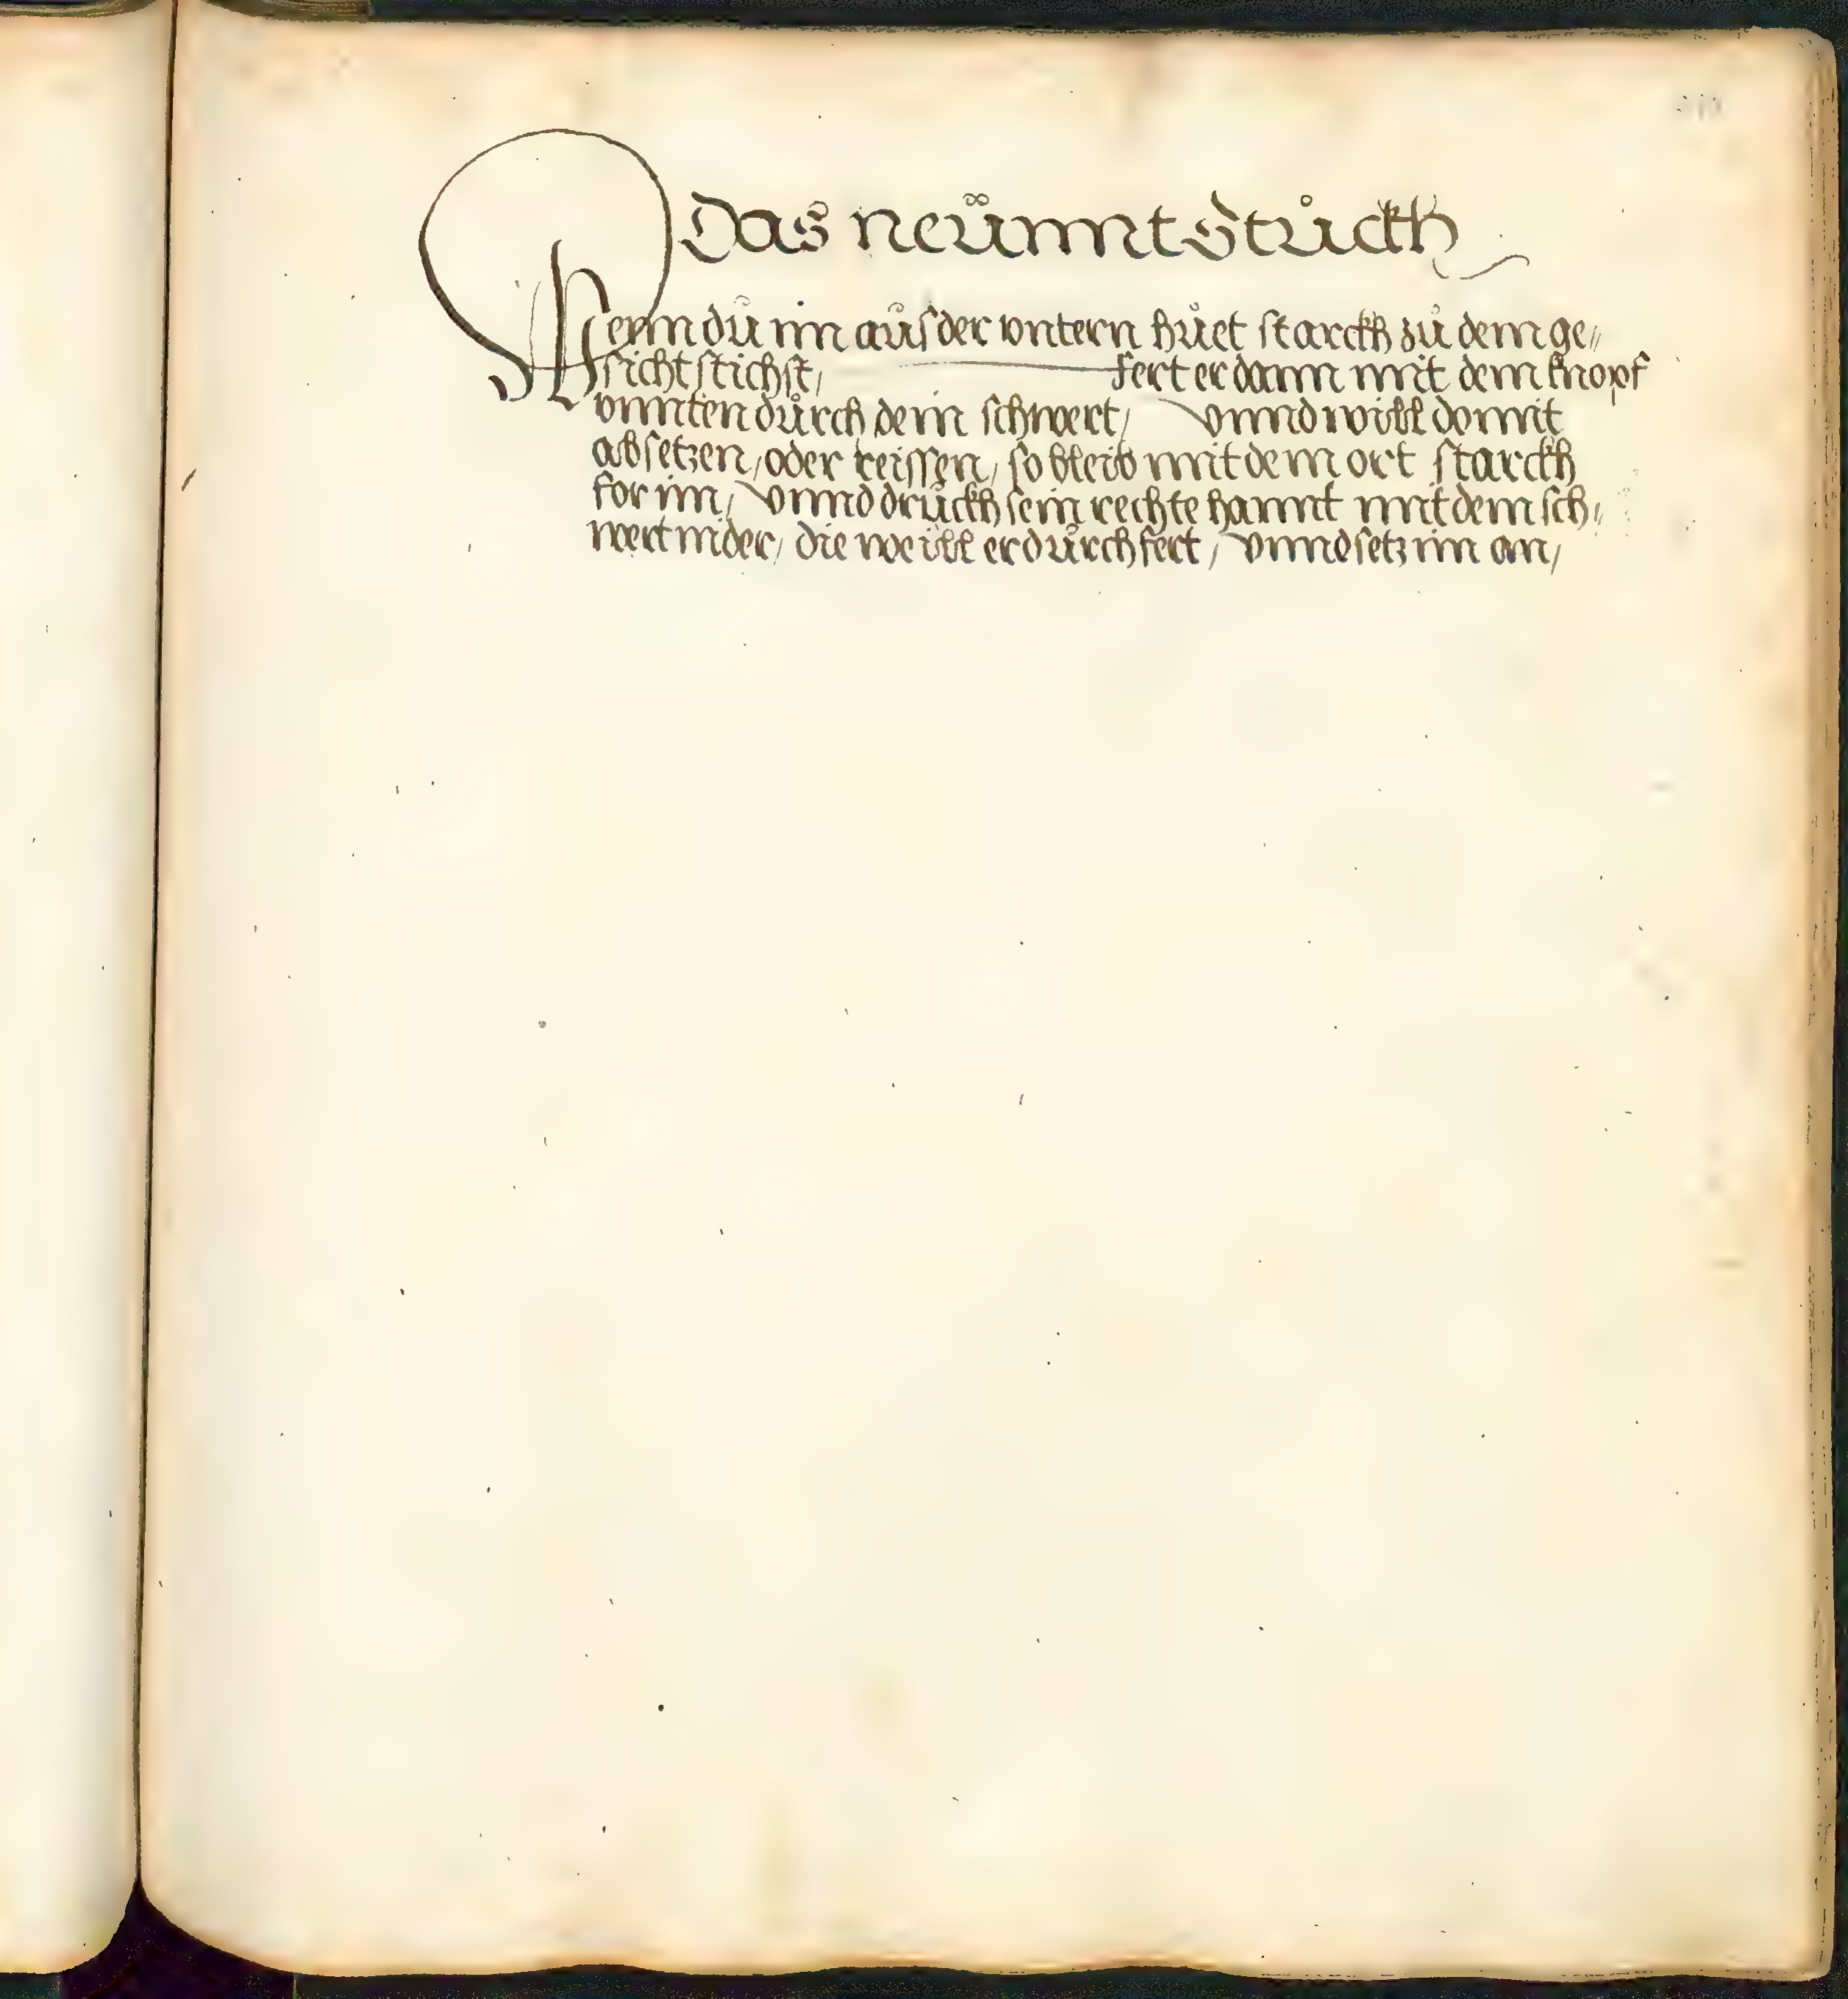 Das neünnt Stückh
Wenn dů im aůs der vntern hůet starckh zů dem ge//
sicht stichst, fert er dann mit dem knopf
vnnten důrch dein schwert, vnnd will domit
absetzen, oder reissen, so bleib mit dem ort starckh
for im, vnnd drückh sein rechte hannt mit dem sch//
wert nider, die weill er důrchfert, vnnd setz im an,